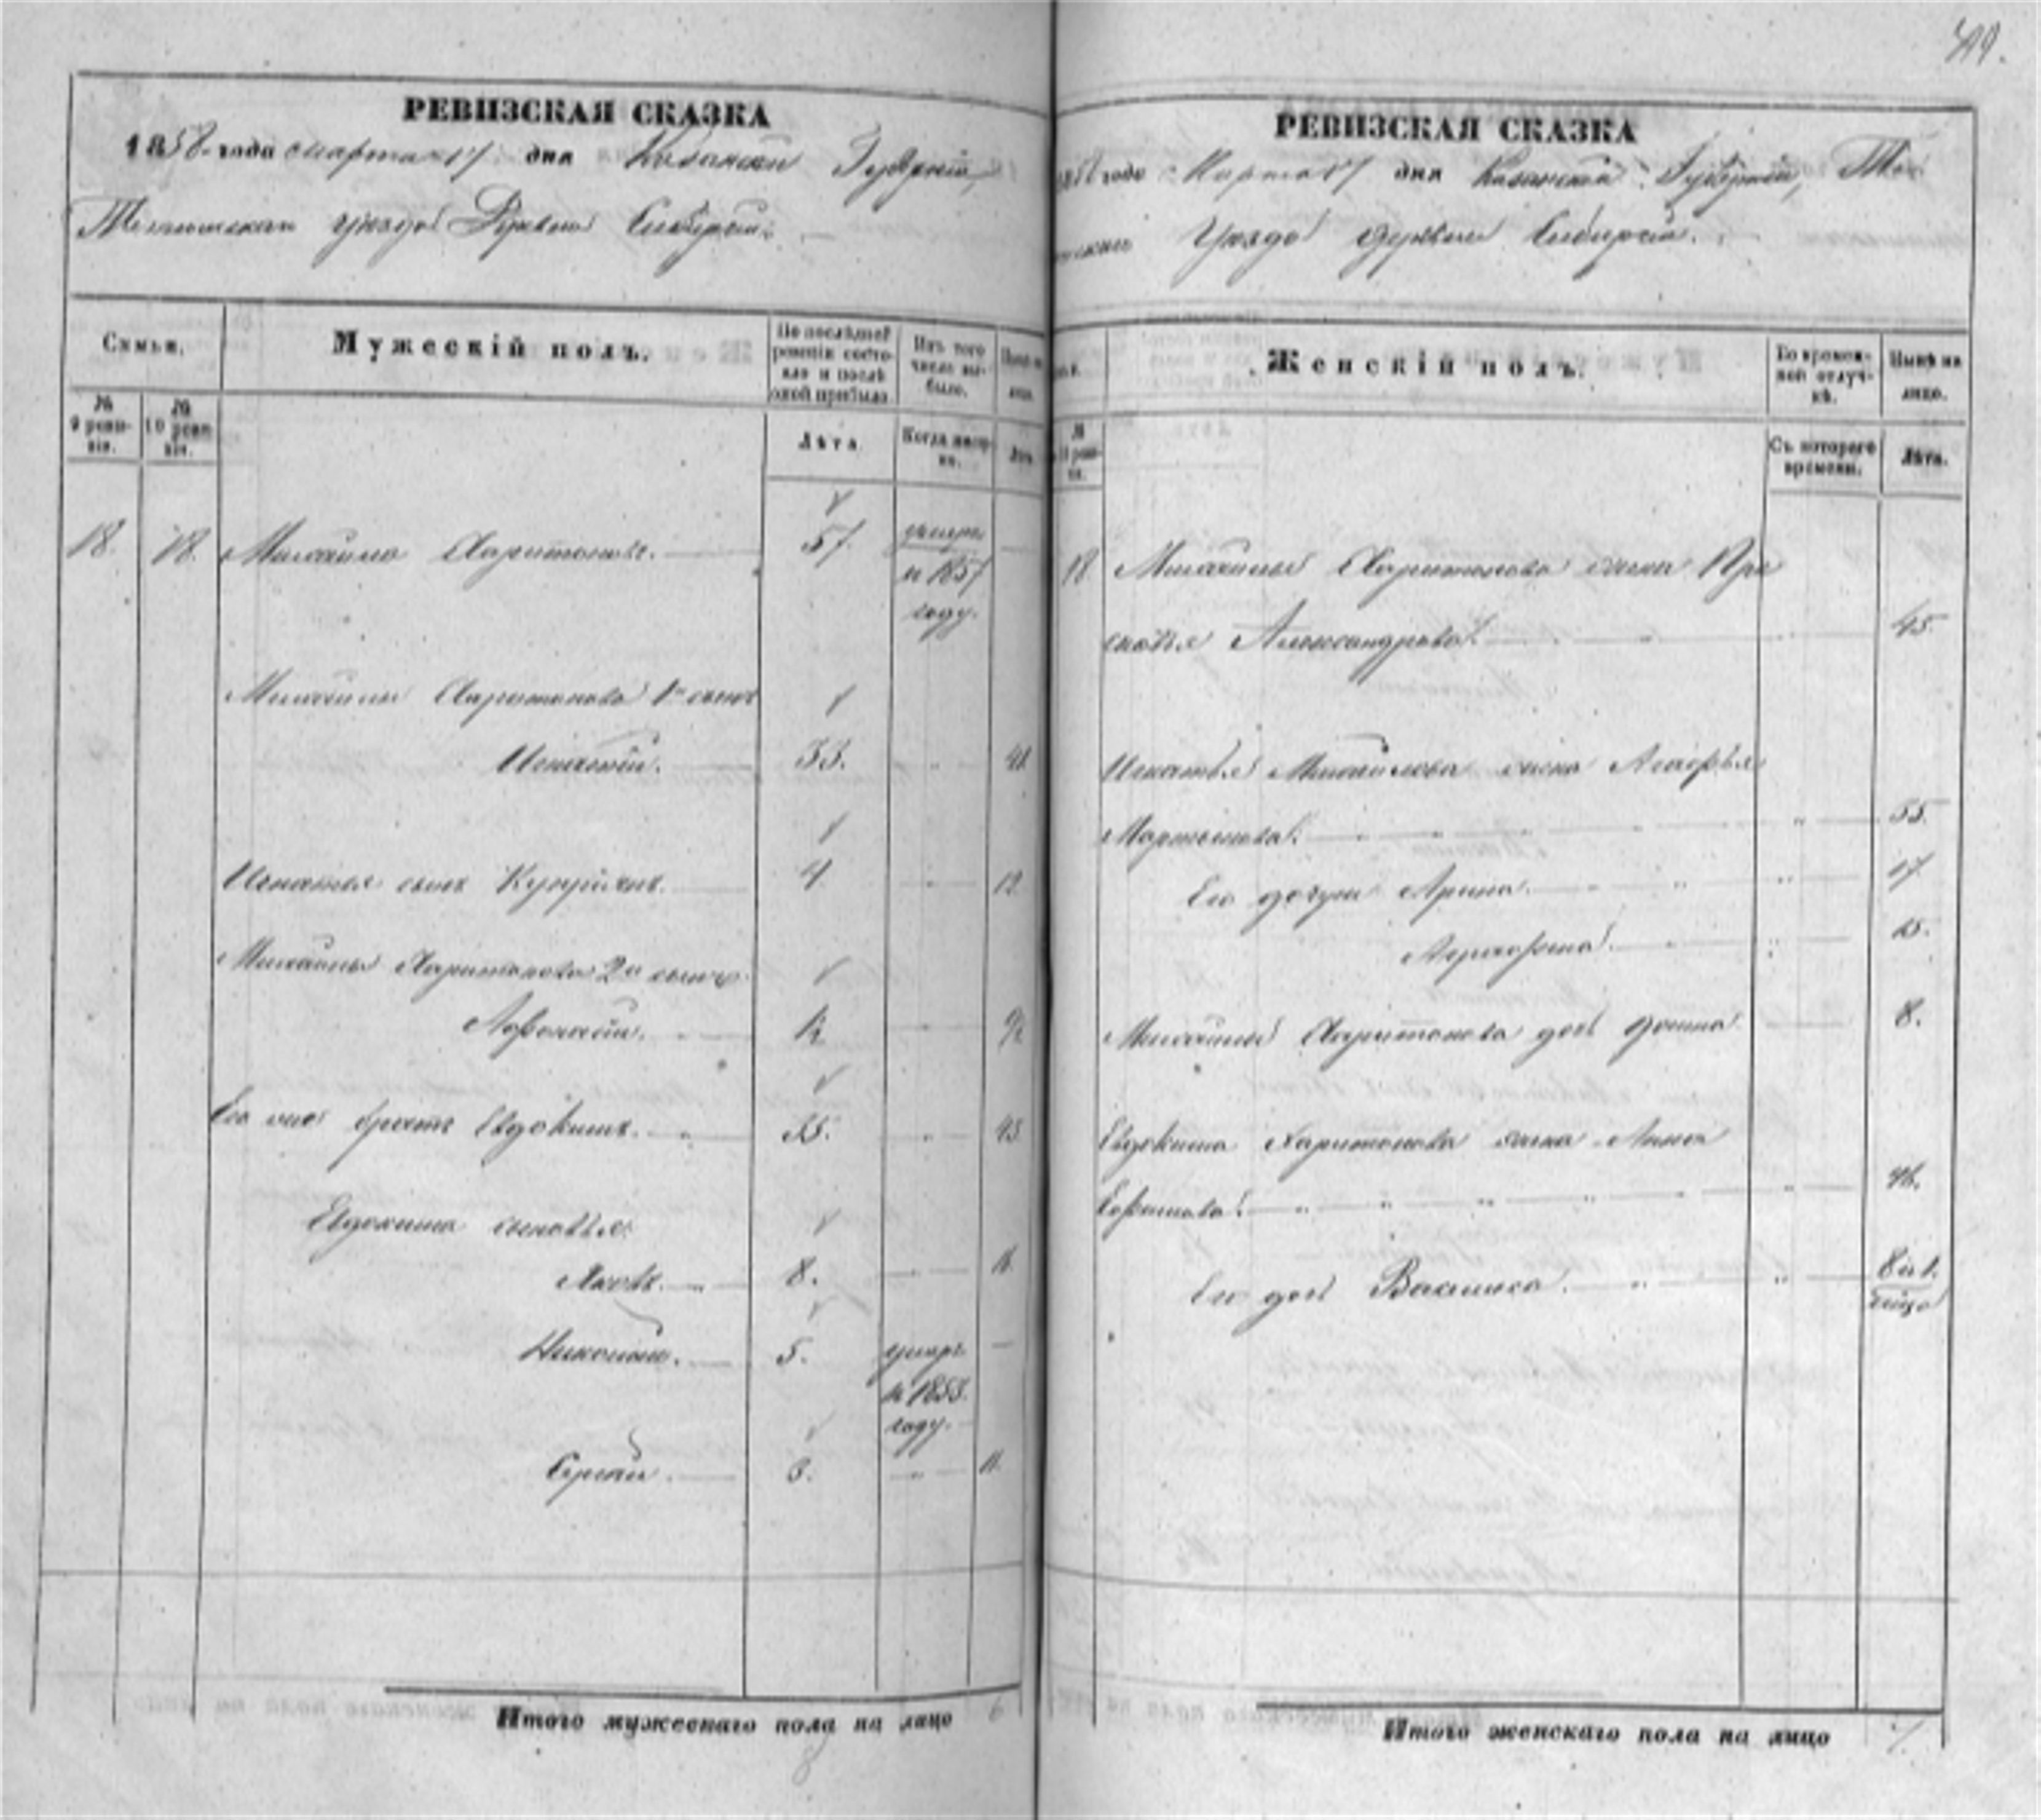 РЕВИЗСКАЯ СКАЗКА
1858 года марта 17 дня Казанской Губерніи,
уезда Деревни Сибирки
Семьи.
Мужескій полъ.
По послѣдней ревизіи состояло и послѣ оной прибыло
Изъ того числа выбыло.
№ 9 ревизіи.
№ 10 ревизіи.
Лѣта.
18. 18. Михайла Харитоновъ. 57. умеръ
в 1857
году.
Михайлы Харитонова 1й сынъ
Игнатій. 33. 41.
Игнатья сынъ Купріянъ. 4 12.
Михайлы Харитонова 2й сынъ
Афонасій. ½ 8½
Его же братъ Евдокимъ. 35. 43.
Евдокима сыновья:
Яковъ. 8. 16.
Николай. 5. умеръ
в 1853.
году.
Сергѣй. 3. 11.
Итого мужескаго пола на лицо 6
РЕВИЗСКАЯ СКАЗКА
года Марта 17 дня Казанской Губерніи,
Уезда деревни Сибирки.
Женскій полъ.
Во временной отлучкѣ.
Нынѣ на лицо.
Съ котораго времени.
Лѣта.
18 Михайлы Харитонова жена Пра
сковья Александрова. 45.
Игнатья Михайлова жена
Мартынова. 35.
Его дочери Арина. 17
15.
Михайлы Харитонова дочь 8.
Евдокима Харитонова жена Анна
Ефимова. 46.
Его дочь Василиса.
Итого женскаго пола на лицо 7